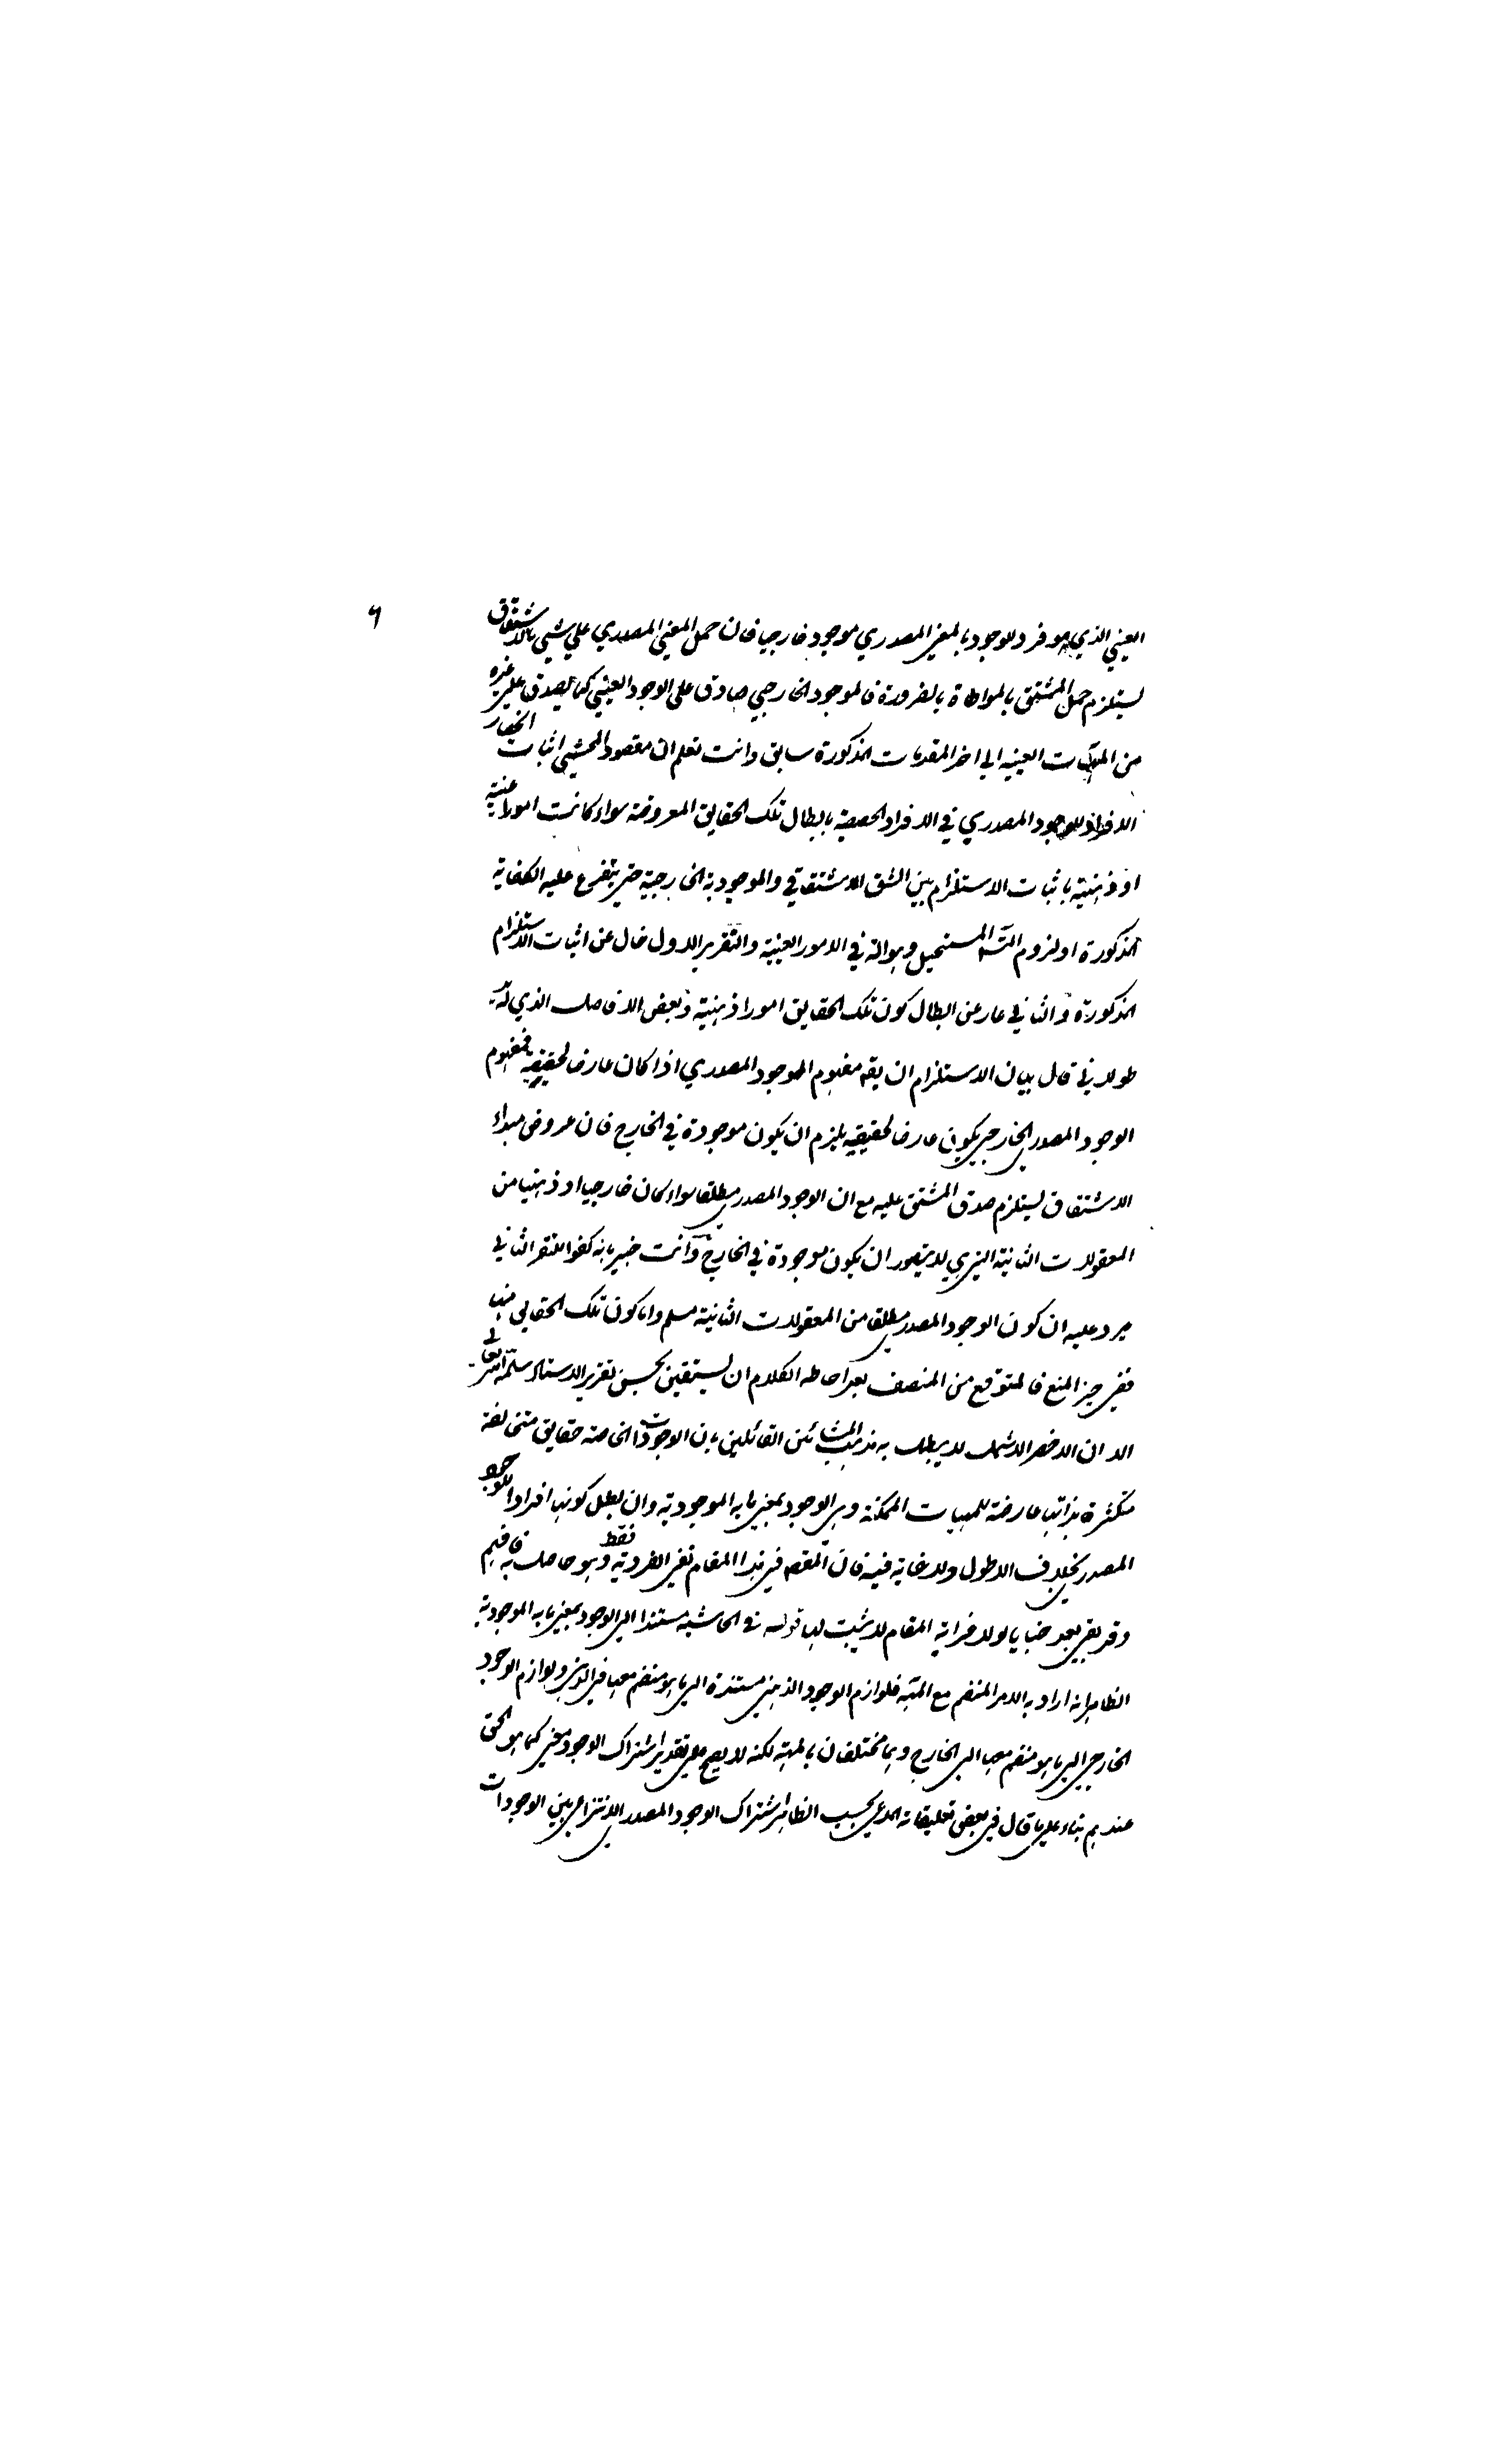 ٦
العيني الذي هو فرد للوجود بالمعنى المصدري موجود خارجيا فان حمل المعنى المصدري على شيى بالاشتقاق
يستلزم حمل المشتق بالمواطاة بالضرورة فالموجود الخارجي صادق على الوجود العيني كما يصدق على غيره
من المهيات العينيه الى اخر المقدمات المذكورة سابق وانت تعلم ان مقصود المحشي اثبات انحصار
الافراد للوجود المصدري في الافراد الحصصية بابطال تلك الحقايق المعروضة سواء كانت امورا عينية
او ذهنية باثبات الاستلزام بين الشق الاشتقاقي والموجودية الخارجية حتى يتفرع عليه الكفاية
المذكورة او لزوم التسـ المستحيل وهوالتـ في الامور العينية والتقرير الاول خال عن اثبات الاستلزام
المذكورة والثاني عار عن ابطال كون تلك الحقايق امورا ذهنية وبعض الافاضل الذي له يد
طولى في قال بيان الاستلزام ان يقه مفهوم الموجود المصدري اذا كان عارضا لحقيقة فمفهوم
الوجود المصدري الخارجي يكون عارضا لحقيقه يلزم ان يكون موجودة في الخارج فان عروض مبداء
الاشتقاق يستلزم صدق المشتق عليه مع ان الوجود المصدري مطلقا سواء كان خارجيا او ذهنيا من
المعقولات الثانية التي لا يتصور ان يكون موجودة في الخارج وانت خبير بانه كفوا للتقر الثاني
يرد عليه ان كون الوجود المصدري مطلقا من المعقولات الثانية مسلم واما كون تلك الحقايق منها
ففي حيز المنع فالمتوقع من المنصف بعد احاطه الكلام ان يستيقن بحسن تقرير الاستاد سلمه الله تعالى
الا ان الاخصر الاشمل لا يبطل به مذهب المشائين القائلين بان الوجودات الخاصه حقايق متخالفة
متكثرة بذاتها عارضة للمهيات الممكنة وهي الوجود بمعنى ما به الموجودية وان بطل كونها افرادا للوجود
المصدري بخلاف الاطول ولا غاية فيه فان المقصـ في هذا المقام نفي الفردية فقط وهو حاصل به فافهم
وقد بقي بعد خبايا لولا غرابة المقام لاثبت لها قوله في الحاشية مستندا الى الوجود بمعنى ما به الموجودية
الظاهر انه اراد به الامر المنضم مع المهية فلوازم الوجود الذهني مستندة الى ما هو منضم معها في الذهن ولوازم الوجود
الخارجي الى ما هو منضم معها الى الخارج وهما مختلفان بالمهية لكنه لا يصح على تقدير اشتراك الوجود معنى كما هو الحق
عندهم بناء على ما قال في بعض تعليقاته المدعي بحسب الظاهر اشتراك الوجود المصدري الانتزاعي بين الوجودات